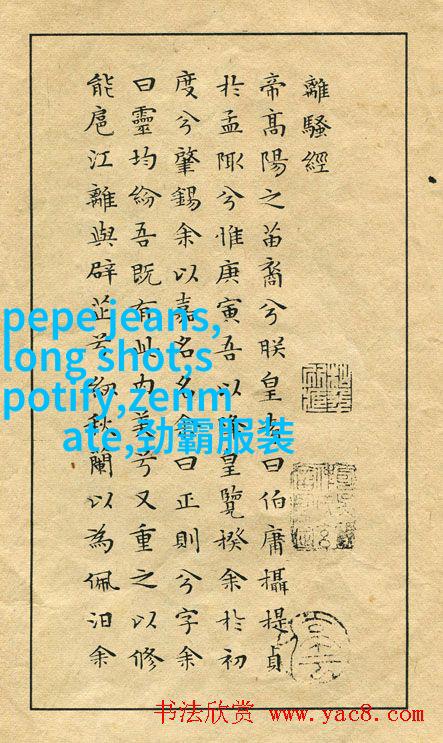 離騷經
帝高陽之苗裔兮朕皇考曰伯庸攝提貞
於孟陬兮惟庚寅吾以降皇覽揆余於初
度兮肇錫余以嘉名名余曰正則兮字余
曰靈均紛吾既有此內美兮又重之以修
能扈江離與辟芷兮紉秋蘭以為佩汩余
pepe jeans,
long shot,s
potify,zenm
ate,劲霸服装
书法欣赏 www.yac8.com